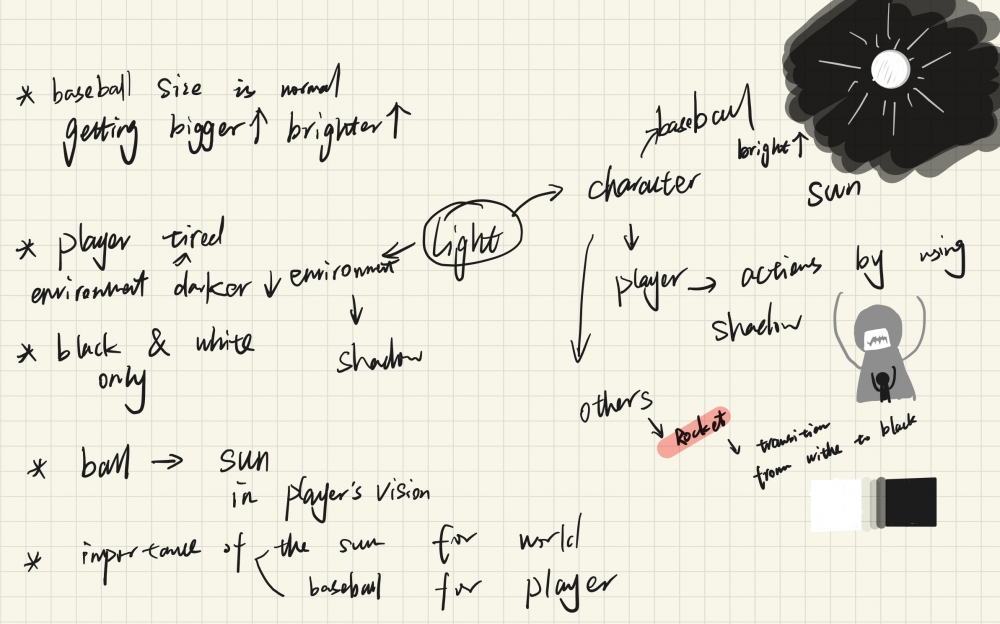 * baseball size is normal
getting bigger↑ brighter↑
* player tired
environment darker ↓
* black & white
only
* ball → sun
in player's vision
* importance of the sun for world
baseball for player
light
environment
↓
shadow
character
baseball
bright↑
sun
↓
player → actions by using
shadow
others
↘ Rocket
↘ transition
from withe to black